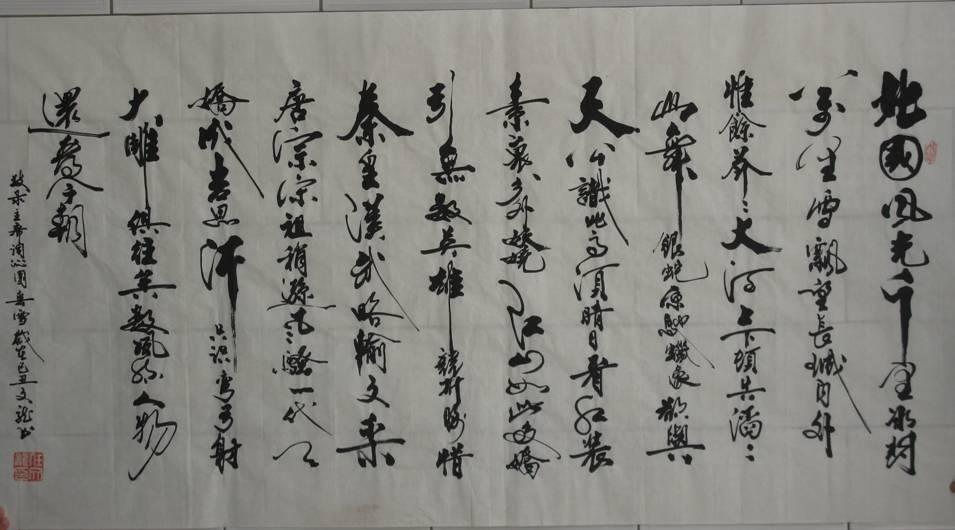 北國風光千里冰封
萬里雪飄望長城內外
惟餘莽々大河上下頓失滔々
山舞銀蛇原馳蠟象欲與
天公識比高須晴日看紅裝
素裹分外妖嬈江山如此多嬌
引無數英雄競折腰惜
秦皇漢武略輸文采
唐宗宋祖稍遜風騷一代天
嬌成吉思汗只识彎弓射
大雕俱往矣數風流人物
還看今朝
敬录主席词沁園春雪歲在己丑文龍书